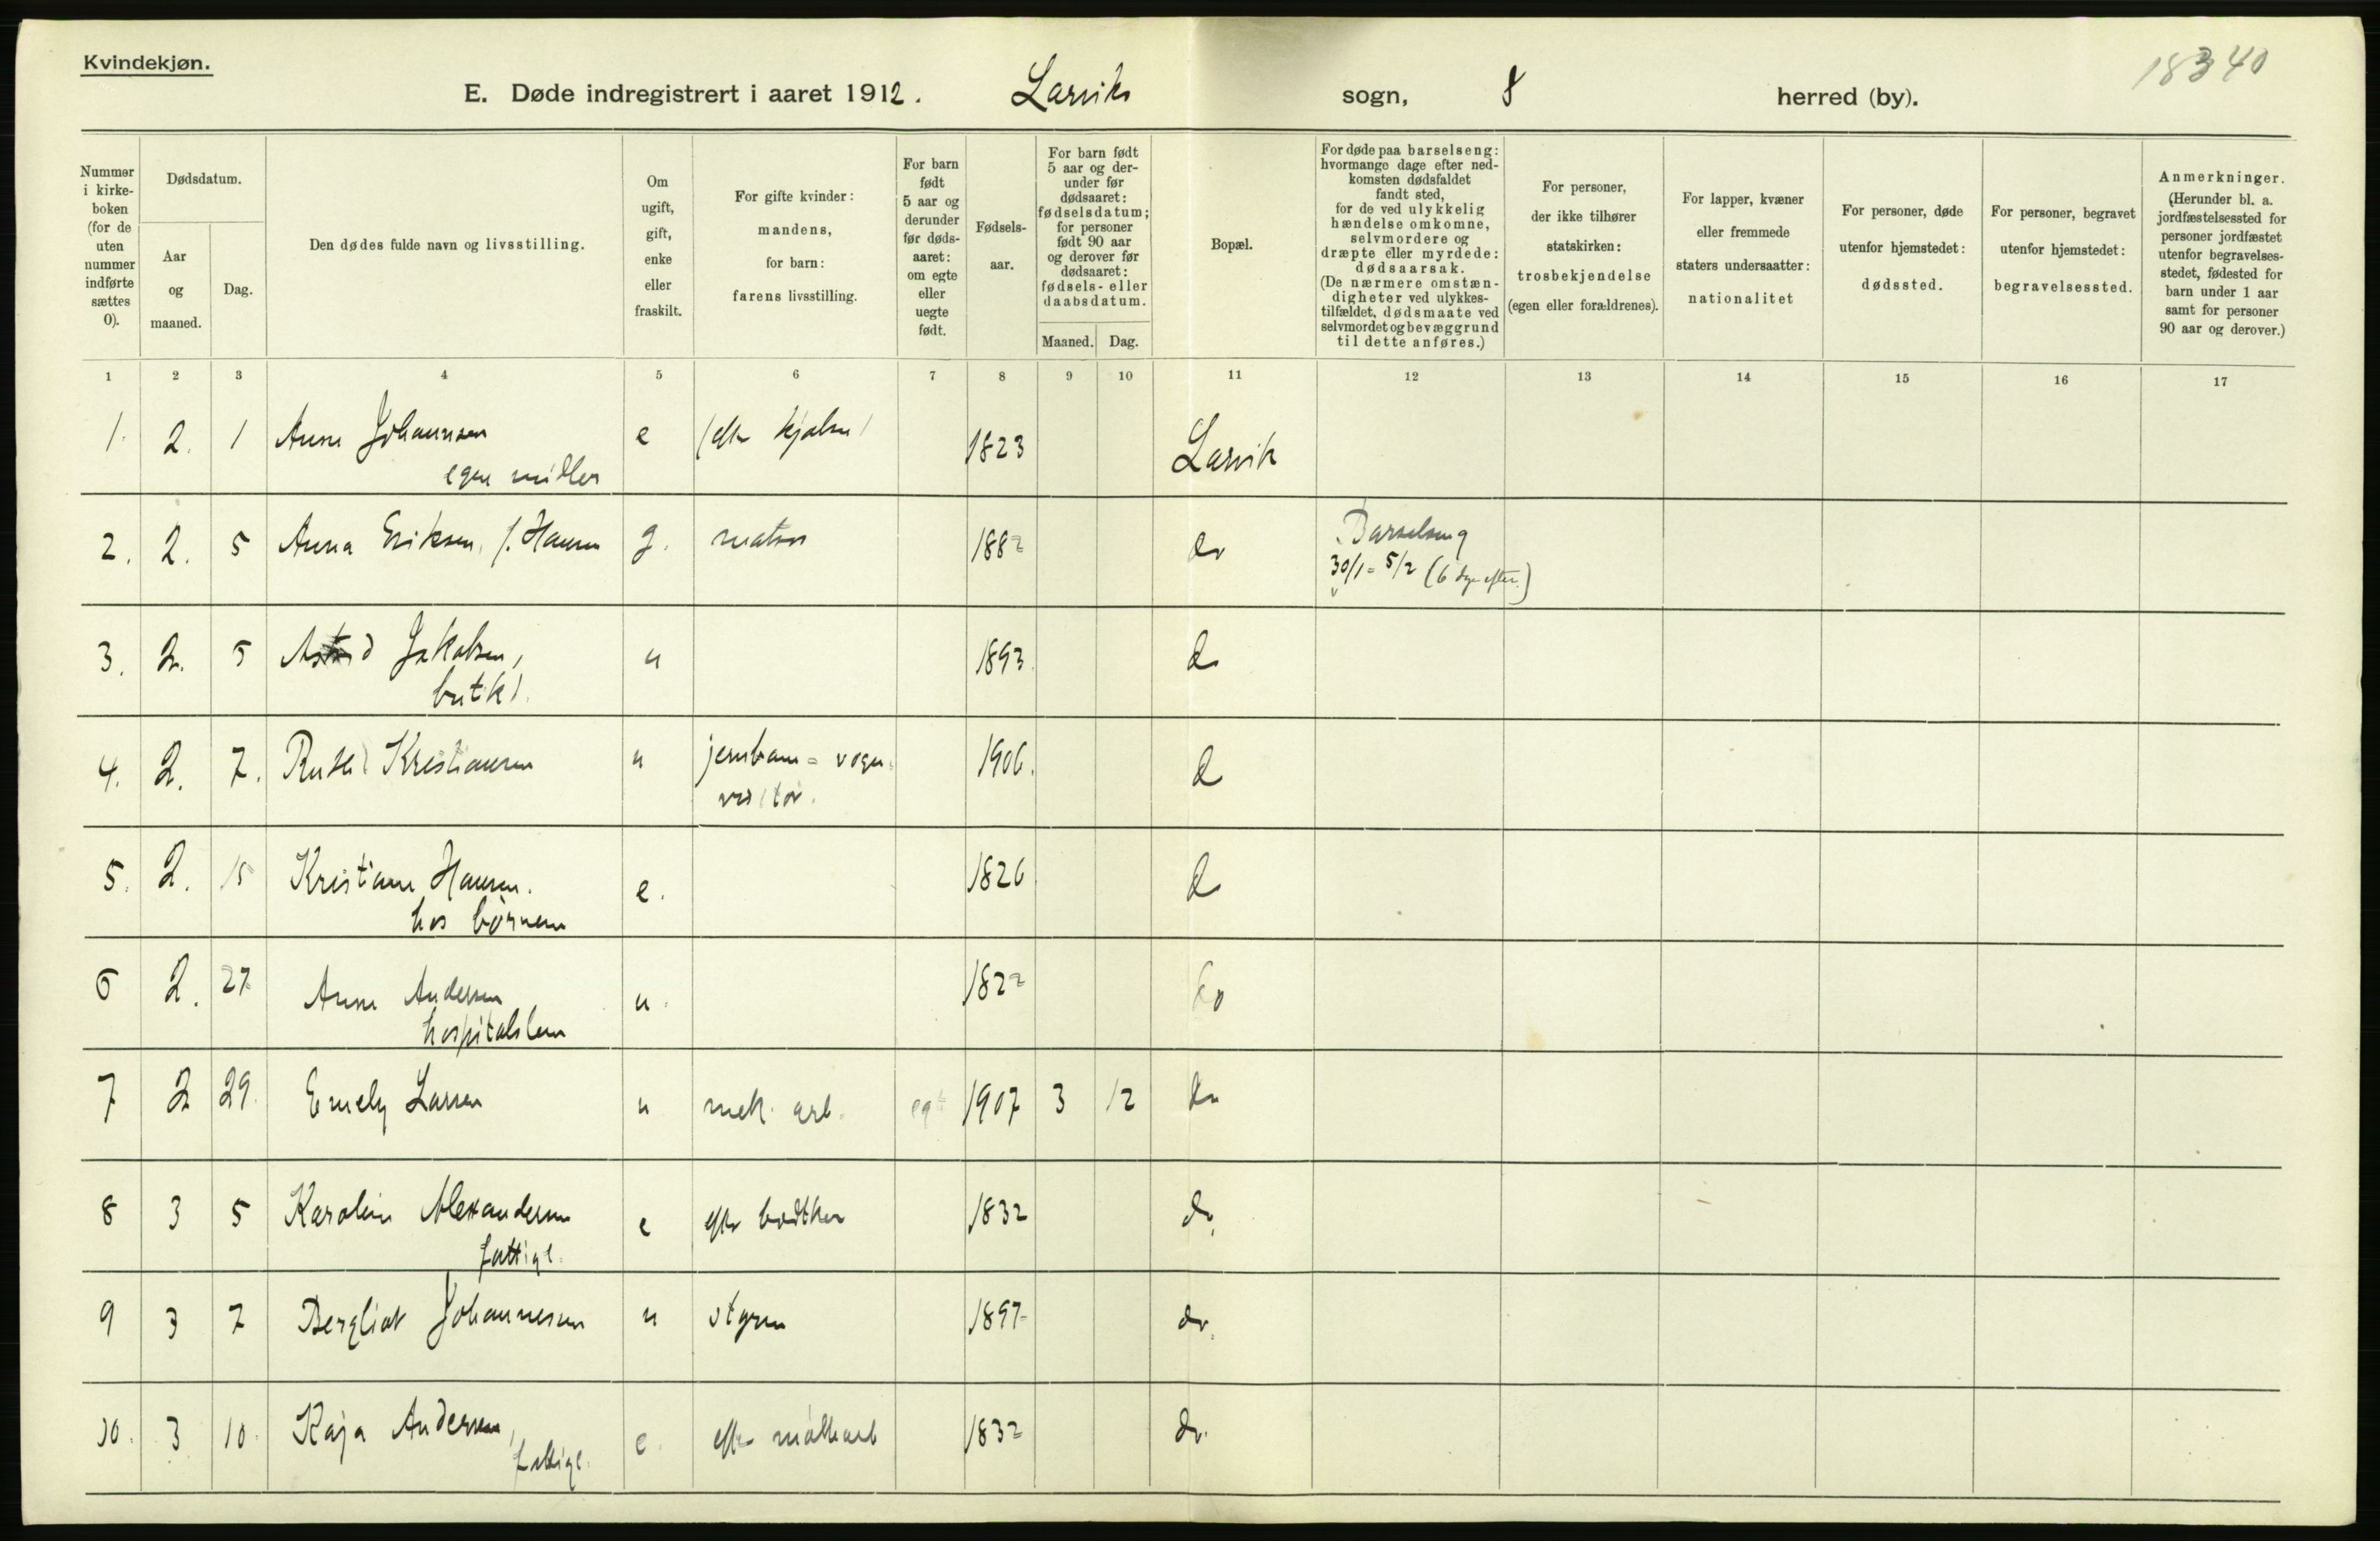 Kvindekjøn.
18340
E. Døde indregistrert i aaret 1912. Larviks sogn, 8 herred (by).
Nummer i kirke-boken (for de uten nummer indførte sættes 0).
Dødsdatum.
Aar og maaned.
Dag.
Den dødes fulde navn og livsstilling.
Om ugift, gift, enke eller fraskilt.
For gifte kvinder: mandens, for barn: farens livsstilling.
For barn født 5 aar og derunder før døds-aaret: om egte eller uegte født.
Fødsels-aar.
For barn født 5 aar og der-under før dødsaaret: fødselsdatum; for personer født 90 aar og derover før dødsaaret: fødsels- eller daabsdatum.
Maaned. Dag.
Bopæl.
For døde paa barselseng: hvormange dage efter ned-komsten dødsfaldet fandt sted, for de ved ulykkelig hændelse omkomne, selvmordere og dræpte eller myrdede: dødsaarsak. (De nærmere omstæn-digheter ved ulykkes-tilfældet, dødsmaate ved selvmordet og bevæggrund til dette anføres.)
For personer, der ikke tilhører statskirken: trosbekjendelse (egen eller forældrenes).
For lapper, kvæner eller fremmede staters undersaatter: nationalitet
For personer, døde utenfor hjemstedet: dødssted.
For personer, begravet utenfor hjemstedet: begravelsessted.
Anmerkninger. (Herunder bl. a. jordfæstelsessted for personer jordfæstet utenfor begravelses-stedet, fødested for barn under 1 aar samt for personer 90 aar og derover.)
1 2 3 4 5 6 7 8 9 10 11 12 13 14 15 16 17
1. 2. 1 Anne Johannsen e (efter 1823 Larvik
egne midler
2. 2. 5 Anna Eriksen, f. Hansen g. matros 1882 do Barselseng
30/1 = 5/2 (6 dage efter.)
3. 2. 5 Astrid Jakobsen, u 1893. do
4. 2. 7. Ruth Kristiansen u jernbane = vogn- 1906. do
visitør.
5. 2. 15 Kristiane Hansen. e. 1826 do
hos børnene
6 2. 27 Anne Andersen u. 1822 do
hospitalslem
7 2 29. Emely Larsen u mek. arb. egte 1907 3 12 do
8 3 5 Karoline Alexandersen e efter bødtker 1832 do.
fattigl.
9 3 7 Bergliot Johannesen u styrm 1897 do.
10. 3 10. Kaja Andersen, e. efter møllearb 1832 do.
fattigl.